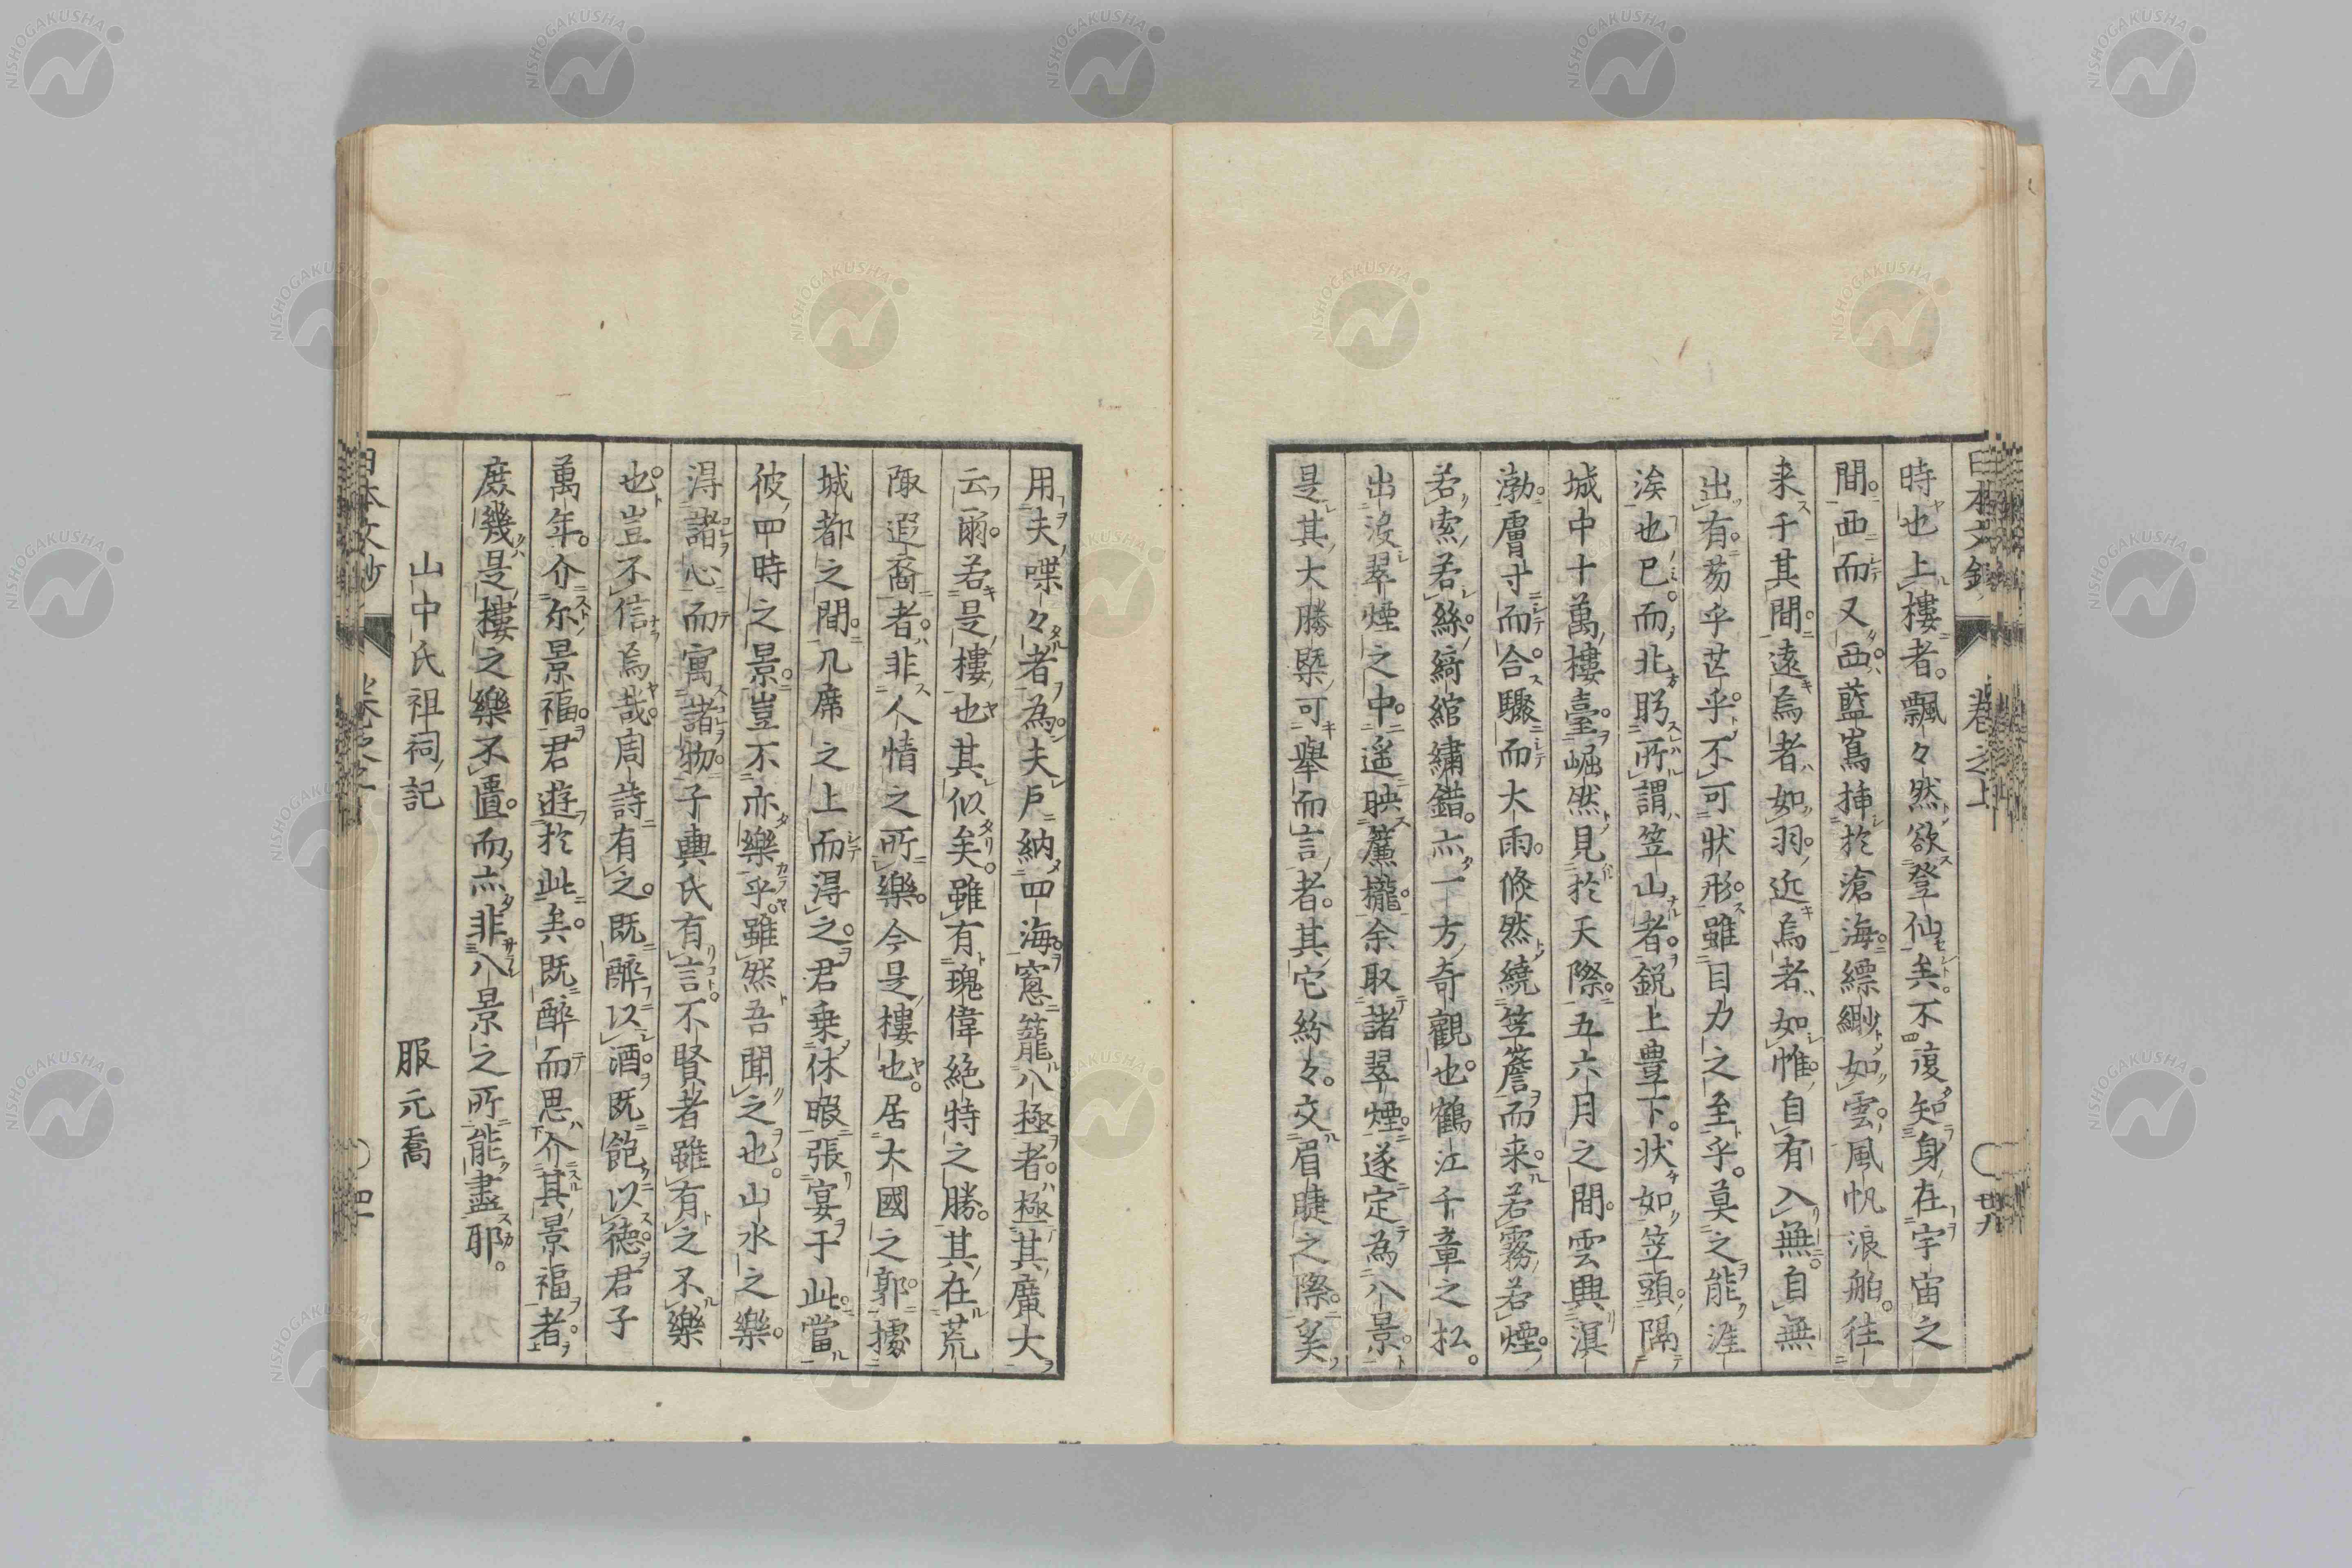 時也上樓者。飄々然欲登仙矣。不復知身在宇宙之
間。西而又西。藍嶌挿於滄海。縹緲如雲。風帆浪舶。往
来于其間。遠焉者如羽。近焉者如帷。自有入無。自無
出有。芴乎芒乎。不可狀形。雖目力之至乎。莫之能涯
涘也已。而北眄所謂笠山者。鋭上豊下。状如笠頭。隔
城中十萬樓臺。崛然見於天際。五六月之間。雲興溟
渤。膚寸而合。驟而大雨。倐然繞笠簷而来。若霧若煙。
若索若絲。綺綰繡錯。亦一方奇觀也。鶴江千章之松。
出没翠煙之中。遥映簾櫳。余取諸翠煙。遂定為八景。
是其大勝槩可舉而言者。其它紛々。交眉睫之際。奚
用夫喋々者為。夫戶納四海。窓籠八極者。極其廣大
云爾。若是樓也其似矣。雖有瑰偉絶特之勝。其在荒
陬遐裔者。非人情之所樂。今是樓也。居大國之郭。據
城都之間。几席之上而淂之。君乗休暇張宴于此。當
彼四時之景。豈不亦樂乎。雖然吾聞之也。山水之樂。
淂諸心而寓諸物。子輿氏有言。不賢者雖有之不樂
也。豈不信焉哉。周詩有之。既醉以酒。既飽以德。君子
萬年。介尔景福。君遊於此矣。既醉而思介其景福者。
庶幾是樓之樂不匱。而亦非八景之所能盡耶。
山中氏祖祠記　服元喬
日本文鈔　卷之上　四九